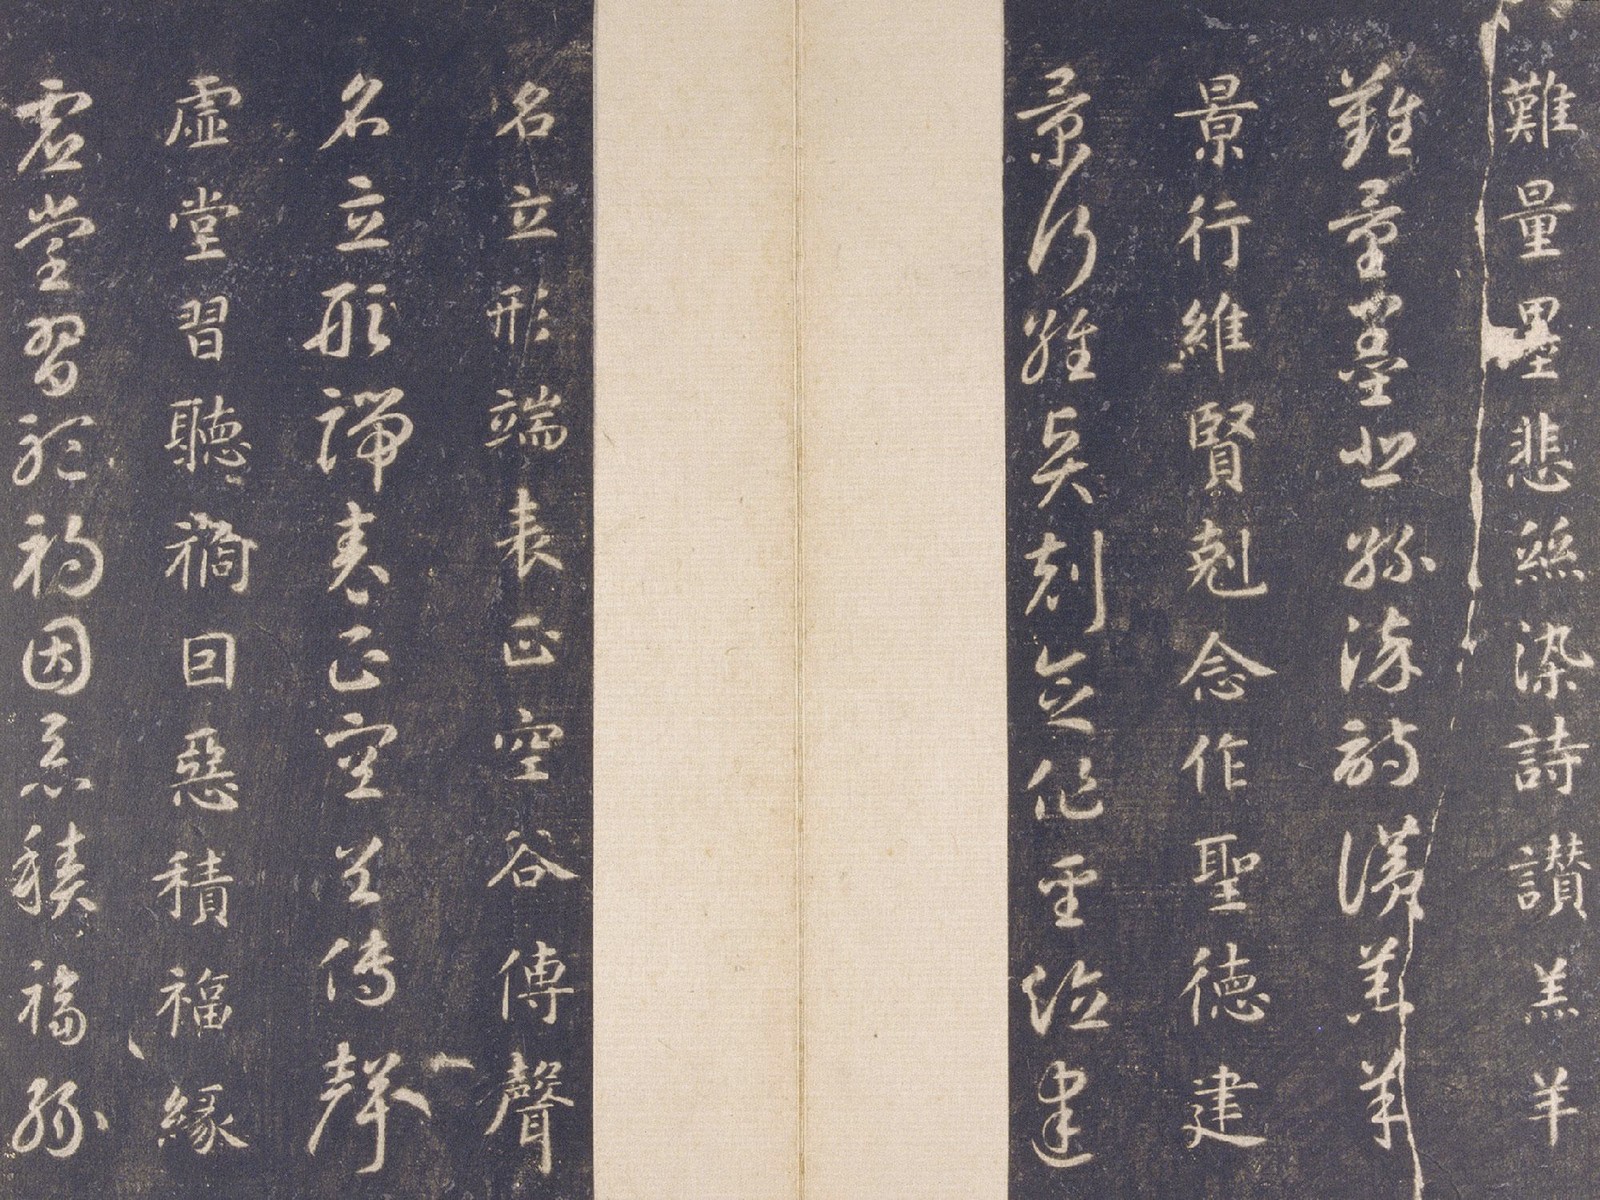 難量墨悲絲染詩讃羔羊
難量墨悲絲染詩讃羔羊
景行維賢剋念作聖德建
景行維賢剋念作聖德建
名立形端表正空谷傳聲
名立形端表正空谷傳聲
虛堂習聽禍因惡積福緣
虛堂習聽禍因惡積福緣